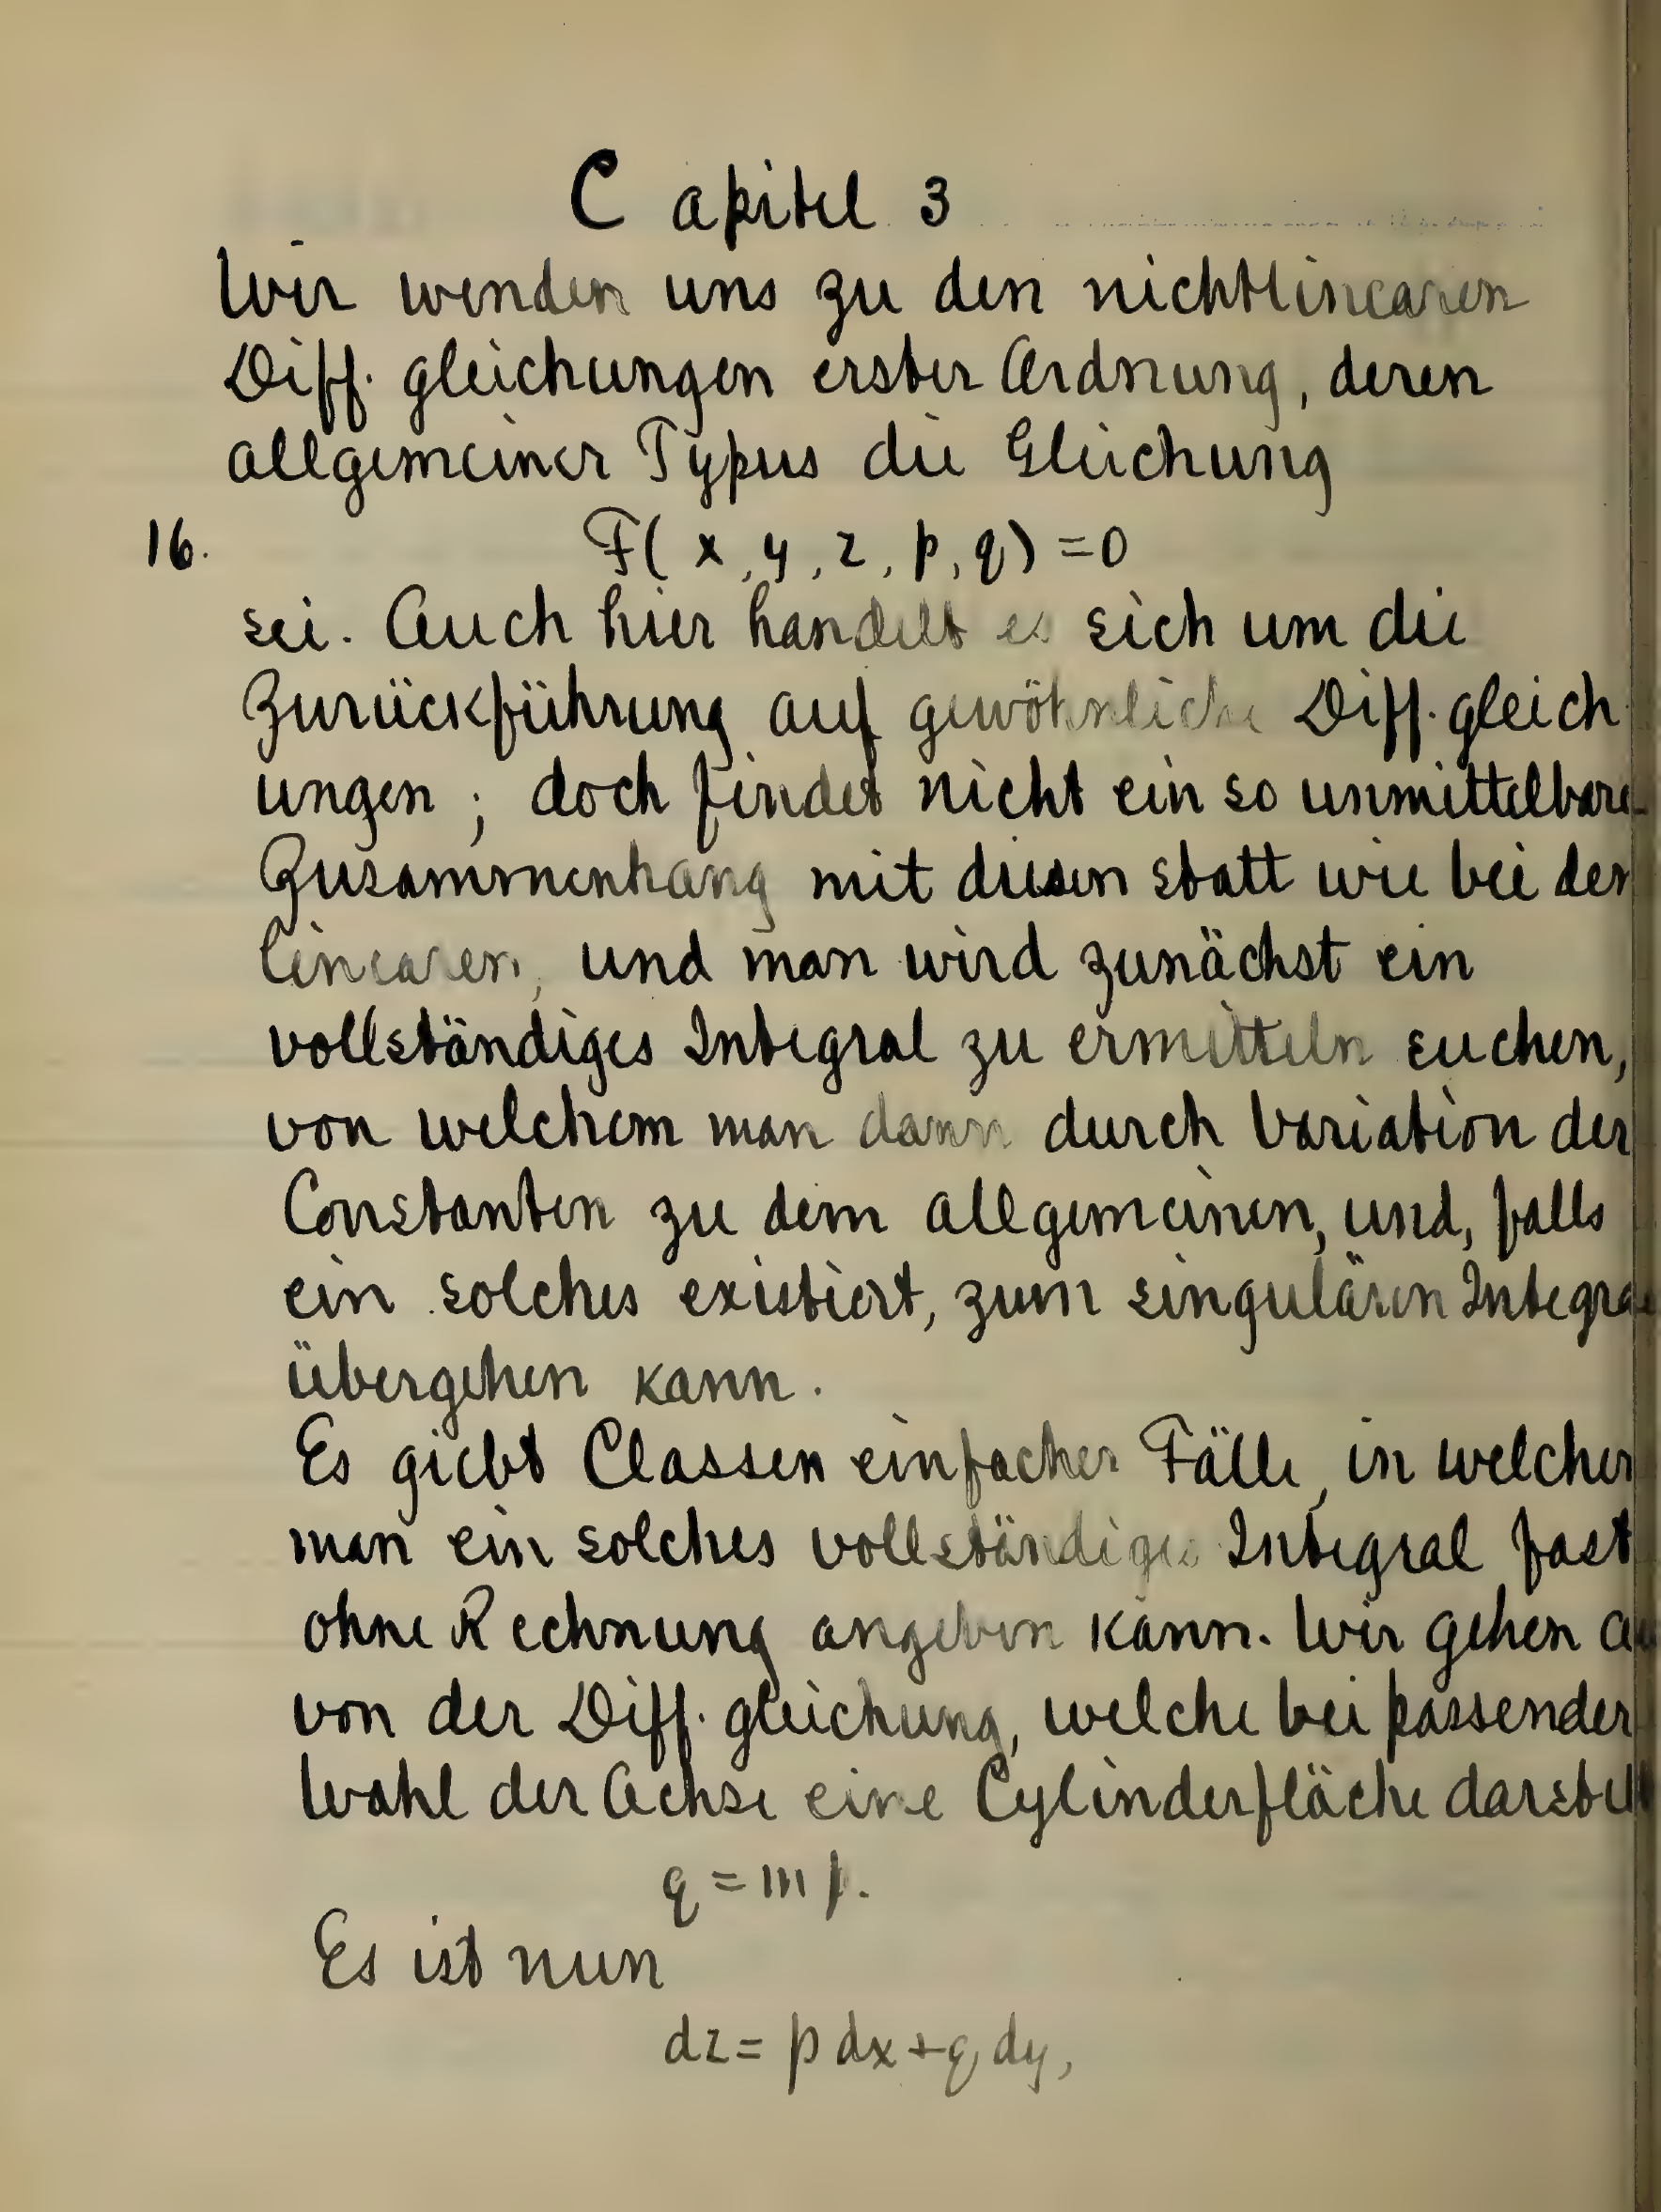 Capitel 3
Wir wenden uns zu den nichtlinearen
Diff. gleichungen erster Ordnung, deren
allgemeiner Typus die Gleichung
16. F( x, y, z, p, q) = 0
sei. Auch hier handelt es sich um die
Zurückführung auf gewöhnliche Diff. gleich
ungen; doch findet nicht ein so unmittelbare
Zusammenhang mit diesen statt wie bei den
linearen, und man wird zunächst ein
vollständiges Integral zu ermitteln suchen,
von welchem man dann durch Variation der
Constanten zu dem allgemeinen, und, falls
ein solches existiert, zum singulären Integra
übergehen kann.
Es giebt Classen einfacher Fälle, in welchen
man ein solches vollständiges Integral fast
ohne Rechnung angeben kann. Wir gehen au
von der Diff. gleichung, welche bei passender
Wahl der Achse eine Cylinderfläche darstell
q = m p.
Es ist nun
dz = p dx + q dy,